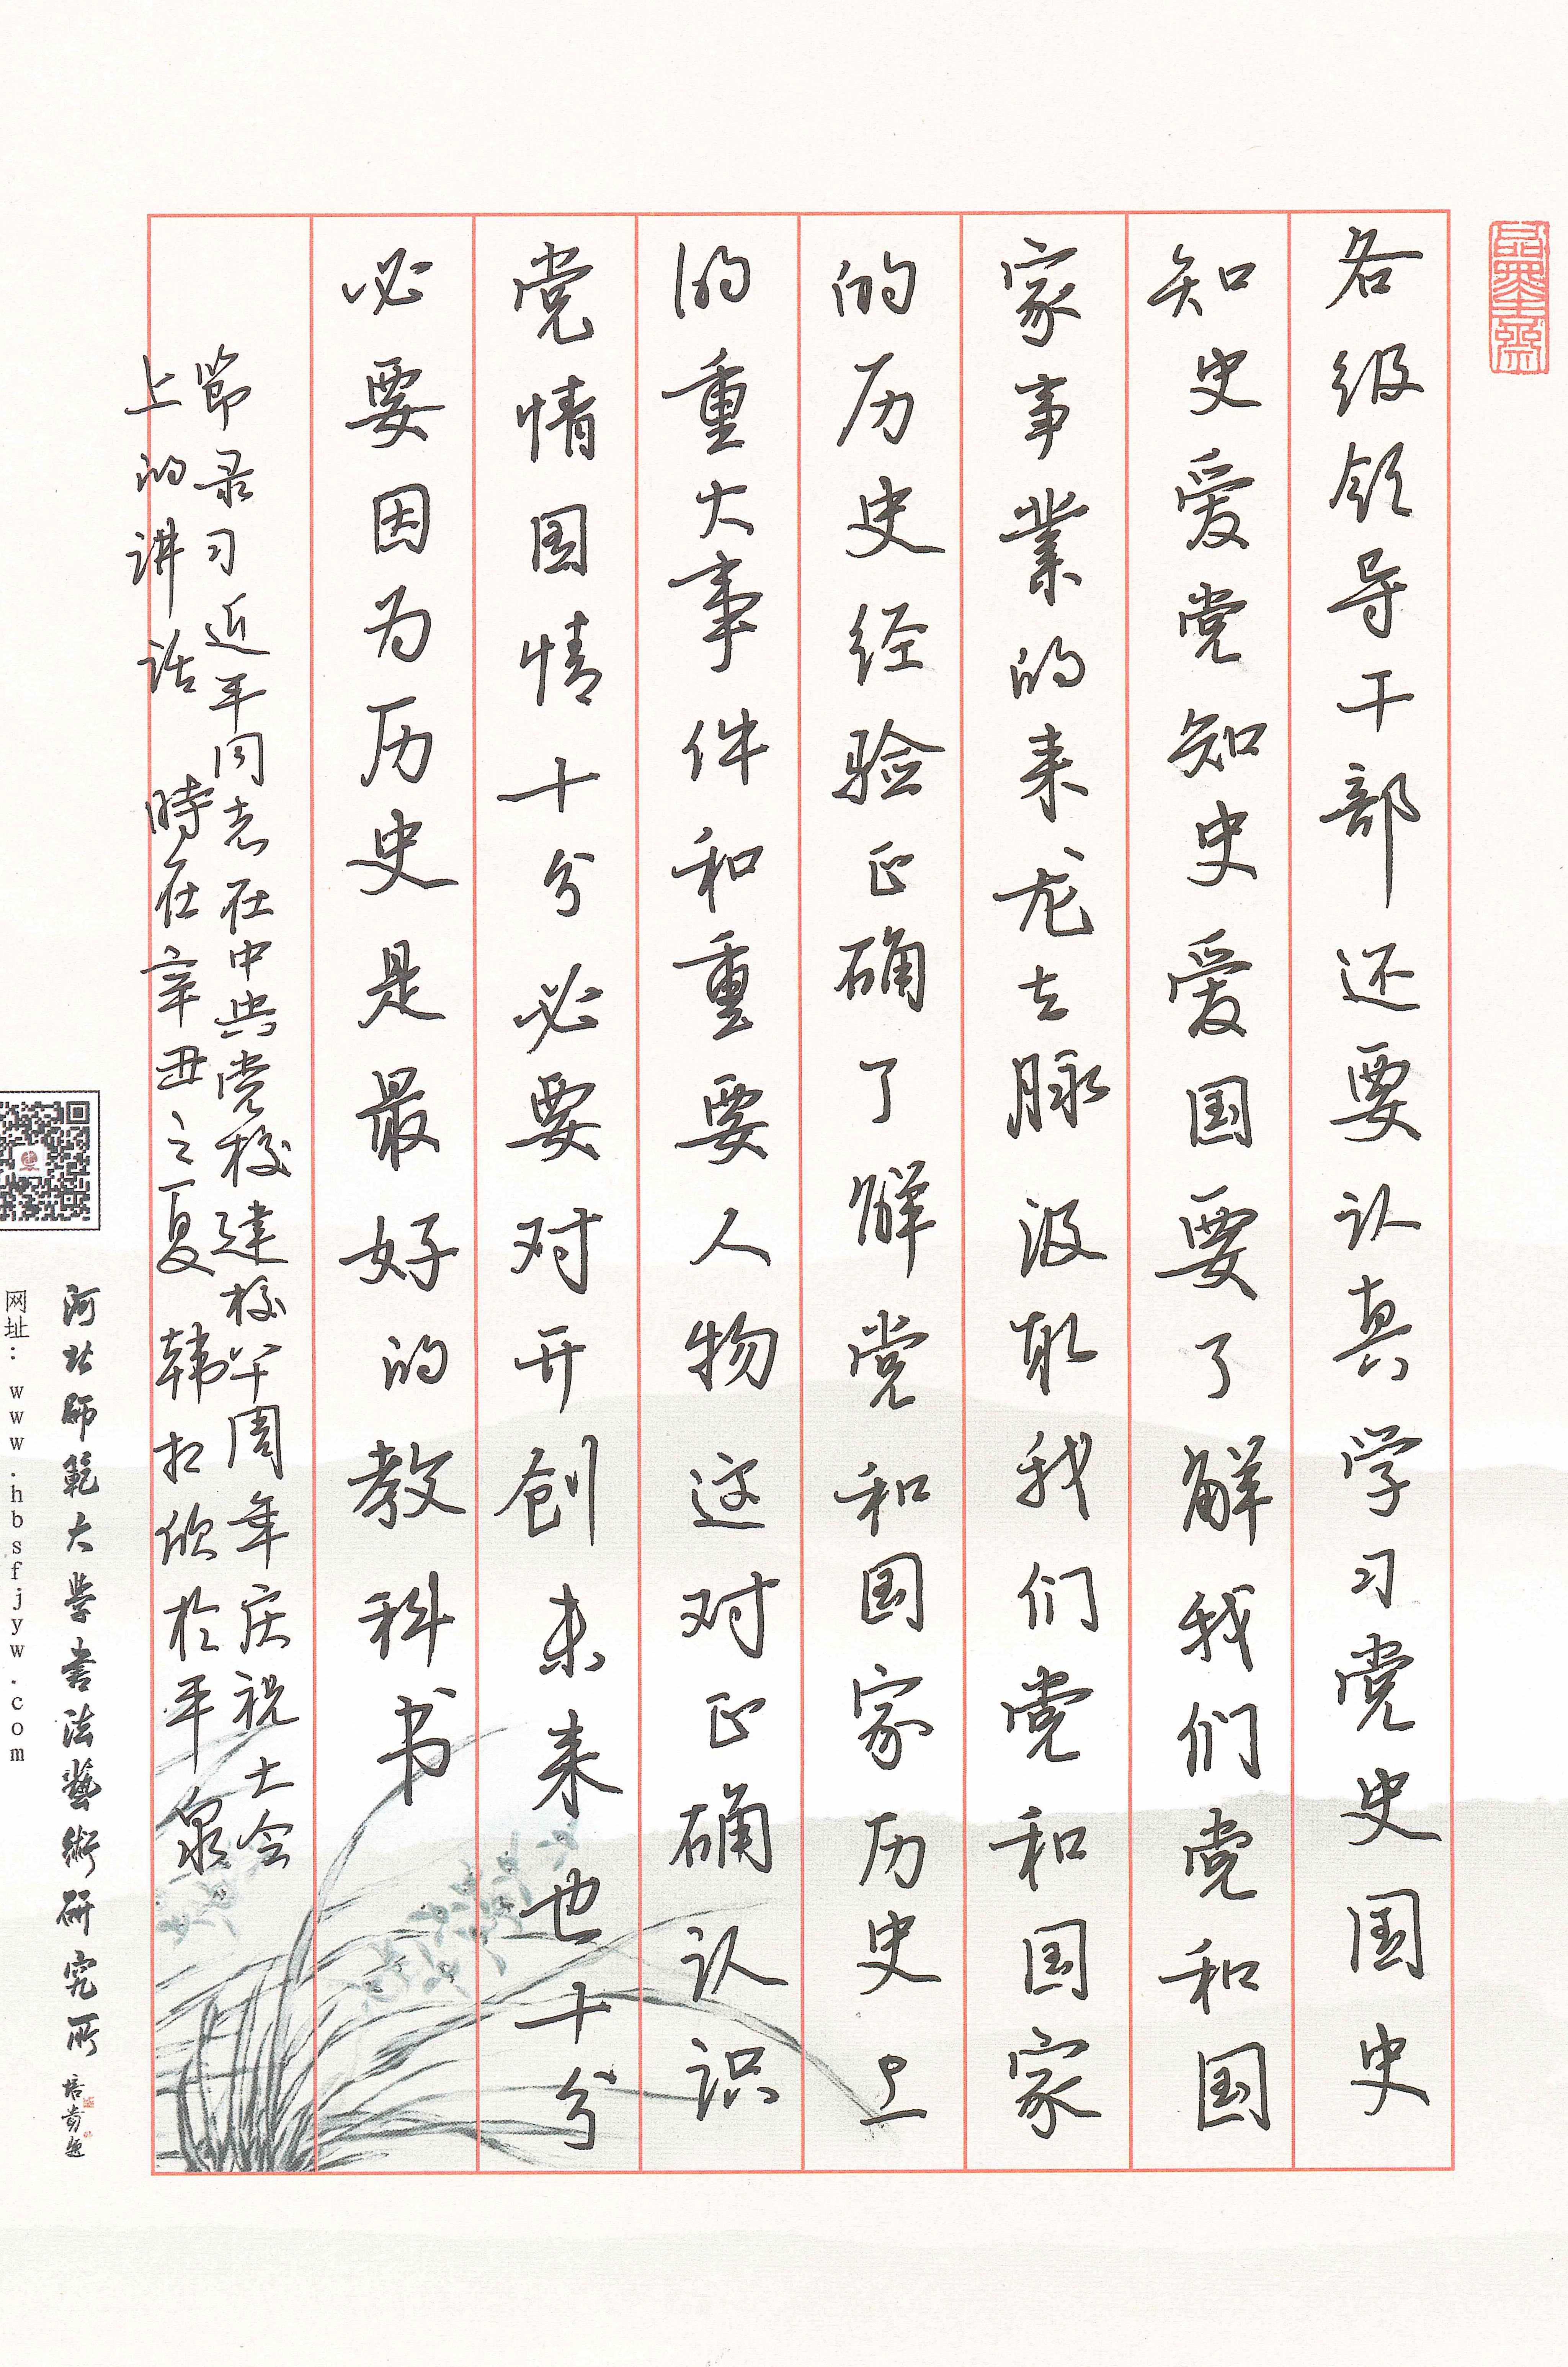 各级领导干部还要认真学习党史国史
知史爱党知史爱国要了解我们党和国
家事业的来龙去脉汲取我们党和国家
的历史经验正确了解党和国家历史上
的重大事件和重要人物这对正确认识
党情国情十分必要对开创未来也十分
必要因为历史是最好的教科书
節录习近平同志在中央党校建校八十周年庆祝大会
上的讲话 時在辛丑之夏 韩红欣於平泉
河北師範大学書法藝術研究所 培貴題
网址：www.hbsfjyw.com